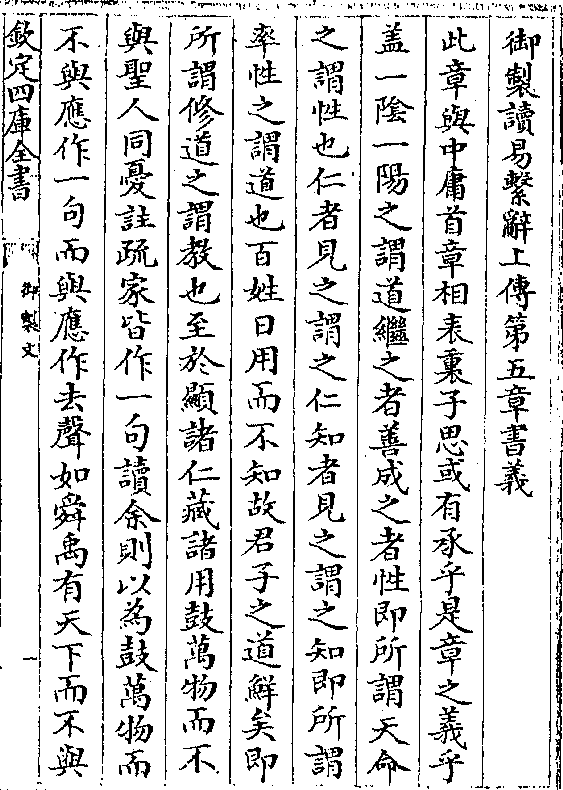 御製讀易繫辭上傳第五章書義
此章與中庸首章相表裏子思或有承乎是章之義乎
盖一陰一陽之謂道繼之者善成之者性即所謂天命
之謂性也仁者見之謂之仁知者見之謂之知即所謂
率性之謂道也百姓日用而不知故君子之道鮮矣即
所謂修道之謂教也至於顯諸仁藏諸用鼓萬物而不
與聖人同憂註疏家皆作一句讀余則以為鼓萬物而
不與應作一句而與應作去聲如舜禹有天下而不與
欽定四庫全書
御製文
一